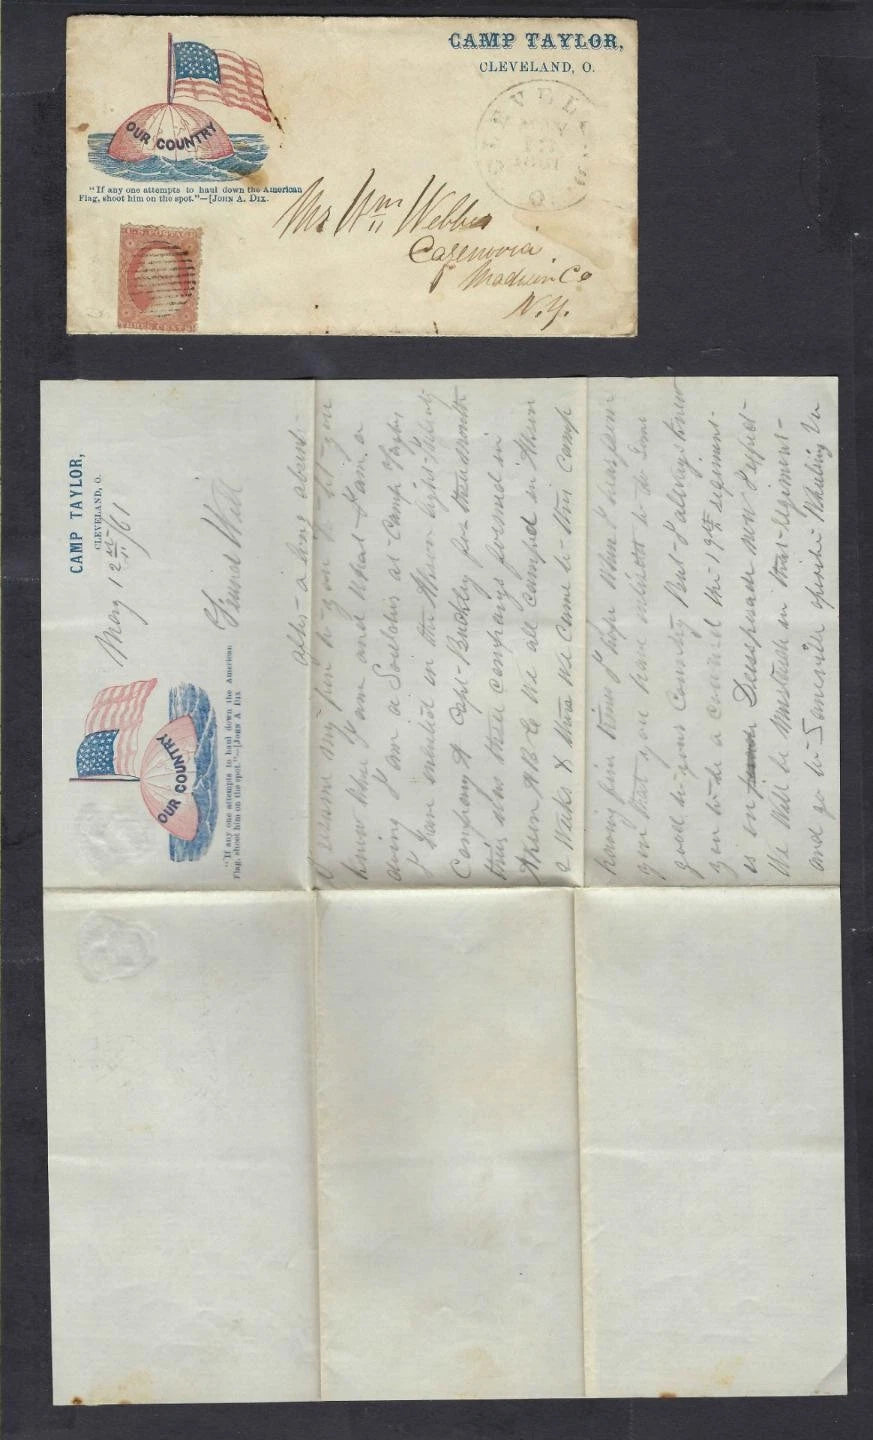 CAMP TAYLOR,
CLEVELAND, O.
OUR COUNTRY
"If any one attempts to haul down the American
Flag, shoot him on the spot."—[JOHN A. DIX.
U.S. POSTAGE
THREE CENTS
Mr Wm Webber
Cazenovia
Madison Co
N.Y.
CAMP TAYLOR,
CLEVELAND, O.
May 12 /61
OUR COUNTRY
"If any one attempts to haul down the American
Flag, shoot him on the spot."—[JOHN A DIX
Friend Will
after a long absence
I resume my pen to you to let you
know where I am and what I am a
doing I am a Soldier at Camp Taylor
I have enlisted in the Akron light
Company Capt Buckley for three month
this is three companys formed in
Akron A B & We all camped in Akron
2 Weaks & then we came to this camp
having fine times I hope when I hear from
you that you have enlisted to do some
good to your country But I always knew
you to be a coward the 19th regiment
is in
We will be in that regiment
and go to Wheeling Va